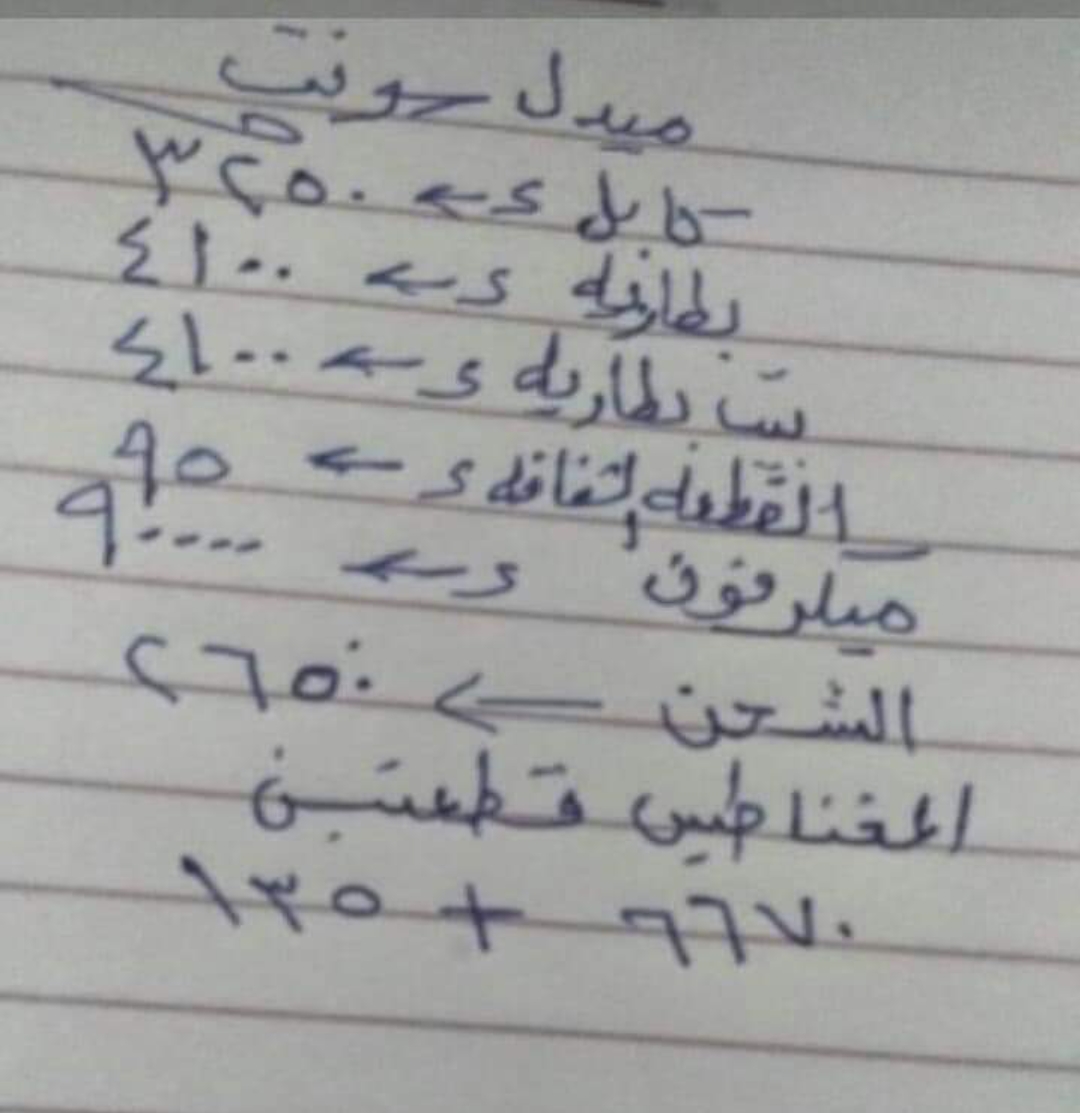 ميدل سونت
كابل s ← ٣٢٥٠
بطاريه s ← ٤١٠٠
ست بطاريه s ← ٤١٠٠
القطعه s ← ٩٥
ميكرفون s ← ٩٠٠٠٠٠
الشحن ← ٢٦٥٠
المغناطيس قطعتين
٦٦٧٠ + ١٣٥